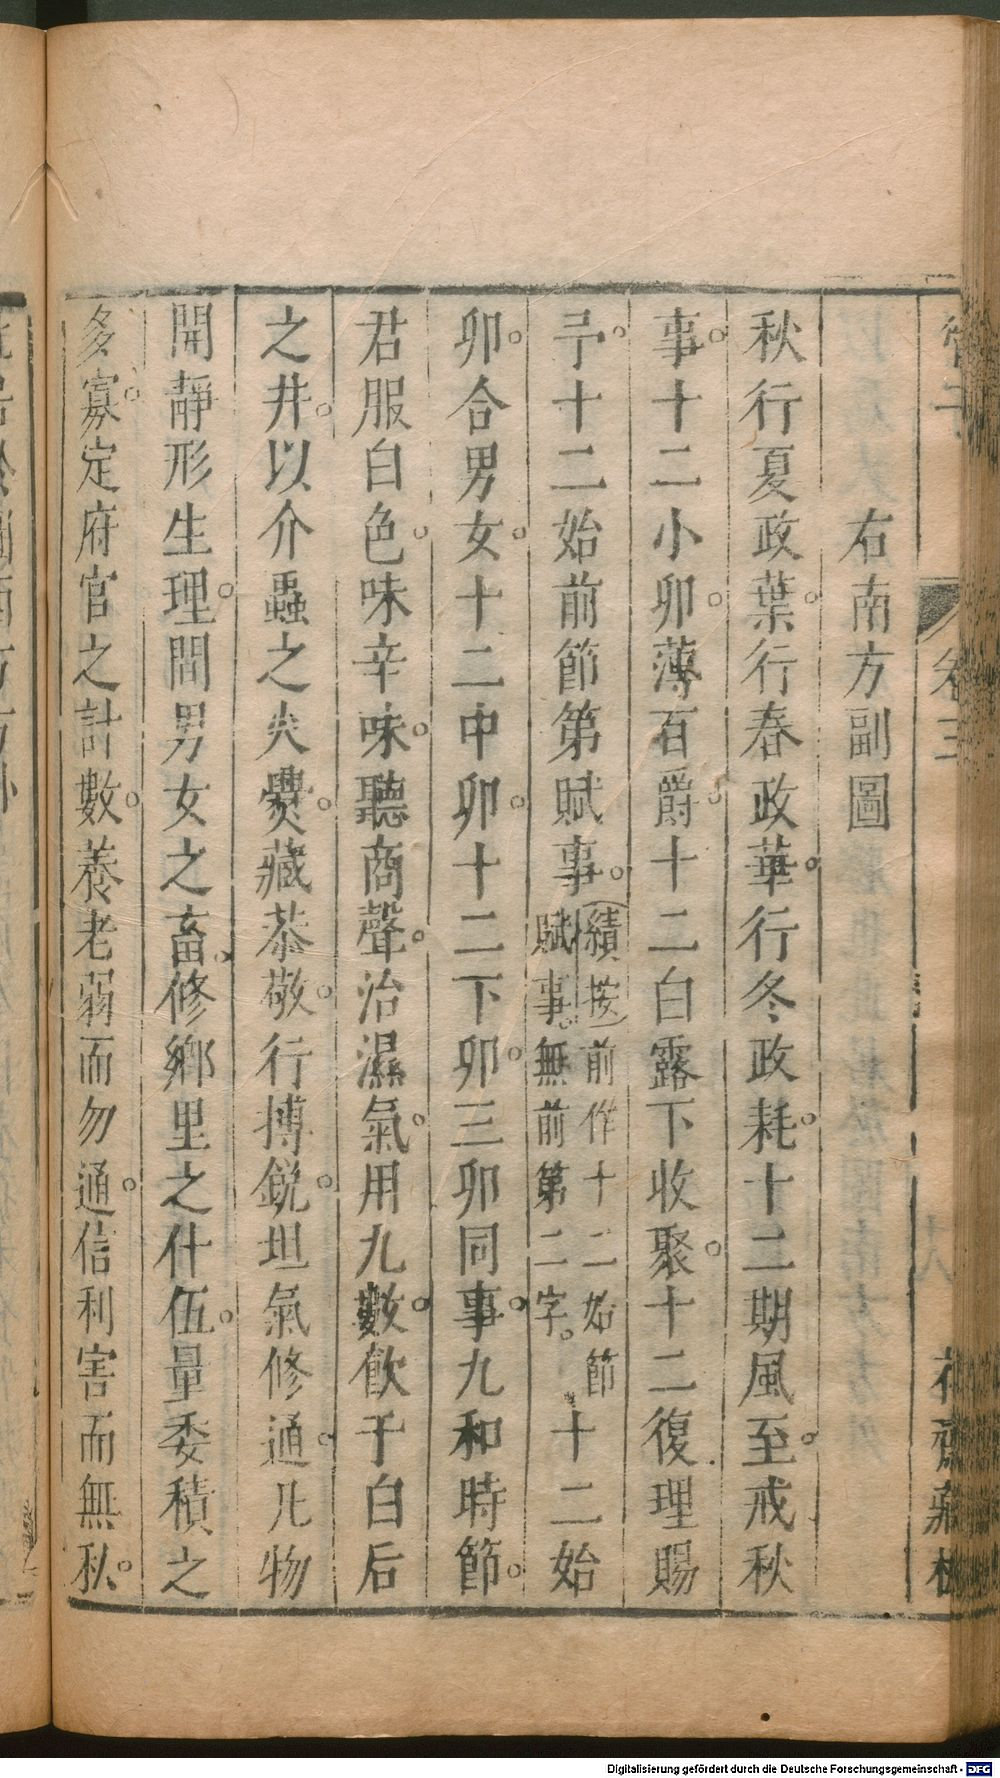 管子
卷三
花齋藏板
右南方副圖
秋行夏政葉行春政華行冬政耗十二期風至戒秋
事十二小卯薄百爵十二白露下收聚十二復理賜
予十二始前節第賦事績按前作十二始節賦事無前第二字十二始
卯合男女十二中卯十二下卯三卯同事九和時節
君服白色味辛味聽商聲治濕氣用九數飲于白后
之井以介蟲之火爨藏恭敬行搏銳坦氣修通凡物
開靜形生理間男女之畜修鄉里之什伍量委積之
多寡定府官之計數養老弱而勿通信利害而無私
Digitalisierung gefördert durch die Deutsche Forschungsgemeinschaft - DFG